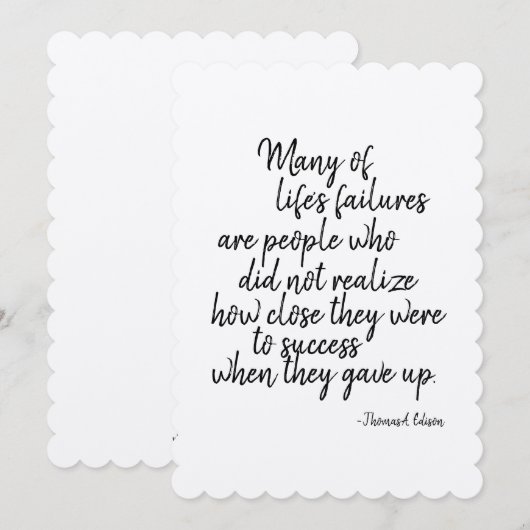 Many of
life's failures
are people who
did not realize
how close they were
to success
when they gave up.
-Thomas A. Edison